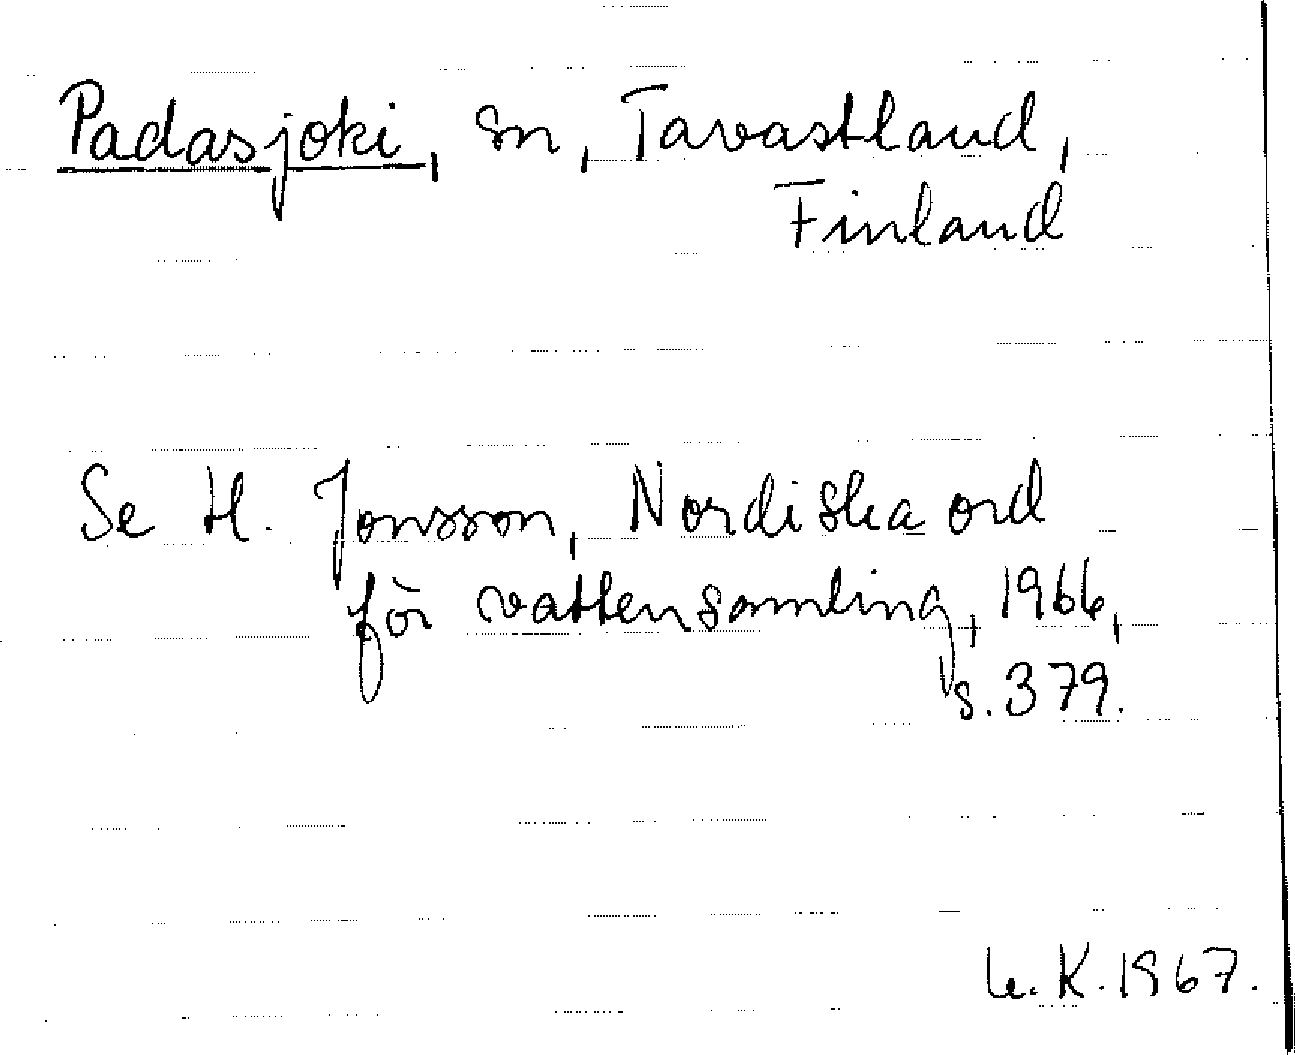 Padasjoki, sn, Tavastland,
Finland
Se H. Jonsson, Nordiska ord
för vattensamling, 1966,
s. 379.
K. 1967.